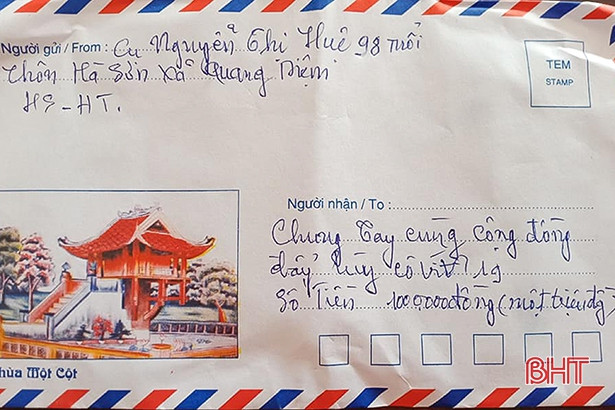 Người gửi / From : Cụ Nguyễn Thị Huê 98 tuổi
Thôn Hà Sơn Xã Quang Diệm
HS-HT.
TEM
STAMP
Người nhận / To :
Chung Tay cùng cộng đồng
đẩy lùy cô vít 19
Số Tiền 1000,000đồng (một triệu đg)
hùa Một Cột
BHT